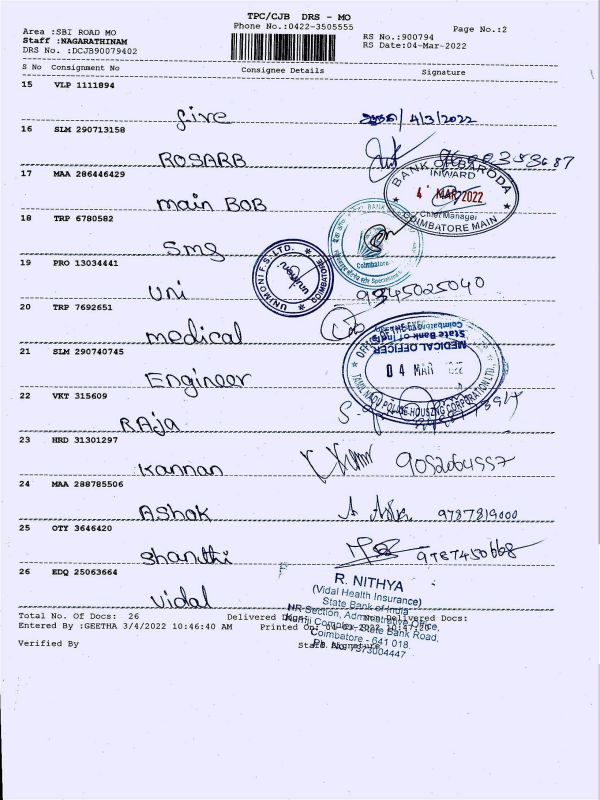 TPC/CJB DRS - MO
Area :SBI ROAD MO Phone No.:0422-3505555 Page No.:2
Staff :NAGARATHINAM RS No.:900794
DRS No. :DCJB90079402 RS Date:04-Mar-2022
S No Consignment No Consignee Details Signature
15 VLP 1111894
five 4/3/2022
16 SLM 290713158
ROSARB
17 MAA 286446429
BANK OF BARODA
INWARD
4 MAR 2022
Chief Manager
COIMBATORE MAIN
main BOB
18 TRP 6780582
Coimbatore
Smg
19 PRO 13034441
UNIMONI F.S. LTD.
COIMBATORE
uni 9345025040
20 TRP 7692651
medical
21 SLM 290740745
State Bank of India
MEDICAL OFFICER
04 MAR
TAMIL NADU POLICE HOUSING CORPORATION LTD.,
Engineer
22 VKT 315609
RAja
23 HRD 31301297
kannan 9052064557
24 MAA 288785506
Ashok 9787819000
25 OTY 3646420
shanthi 9787450668
26 EDQ 25063664
vidal
R. NITHYA
(Vidal Health Insurance)
State Bank of India
HR Section, Administrative Office,
Complex, State Bank Road,
Coimbatore - 641 018.
Ph. No. 7373004447
Total No. Of Docs: 26 Delivered Docs: Non Delivered Docs:
Entered By :GEETHA 3/4/2022 10:46:40 AM Printed On: 04-03-2022 10:47:20
Verified By Staff Signature